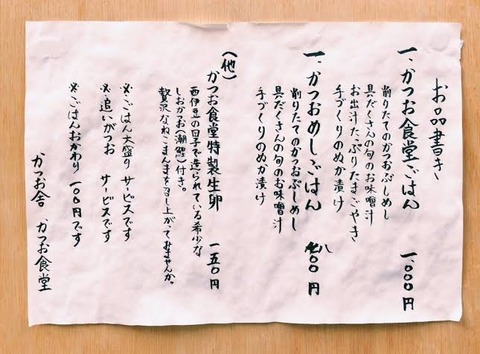 お品書き
一、かつお食堂ごはん 一、〇〇〇円
削りたてのかつおぶしめし
具だくさんの旬のお味噌汁
お出汁たっぷりたまごやき
手づくりのぬか漬け
一、かつおめしごはん 八〇〇円
削りたてのかつおぶしめし
具だくさんの旬のお味噌汁
手づくりのぬか漬け
(他)
かつお食堂特製生卵 一五〇円
西伊豆の田子で造られている希少な
しおかつお(潮鰹)付き。
贅沢なねこまんまを召し上がってみませんか。
※ごはん大盛り サービスです
※追いがつお サービスです
※ごはんおかわり 一〇〇円です
かつお舎 かつお食堂